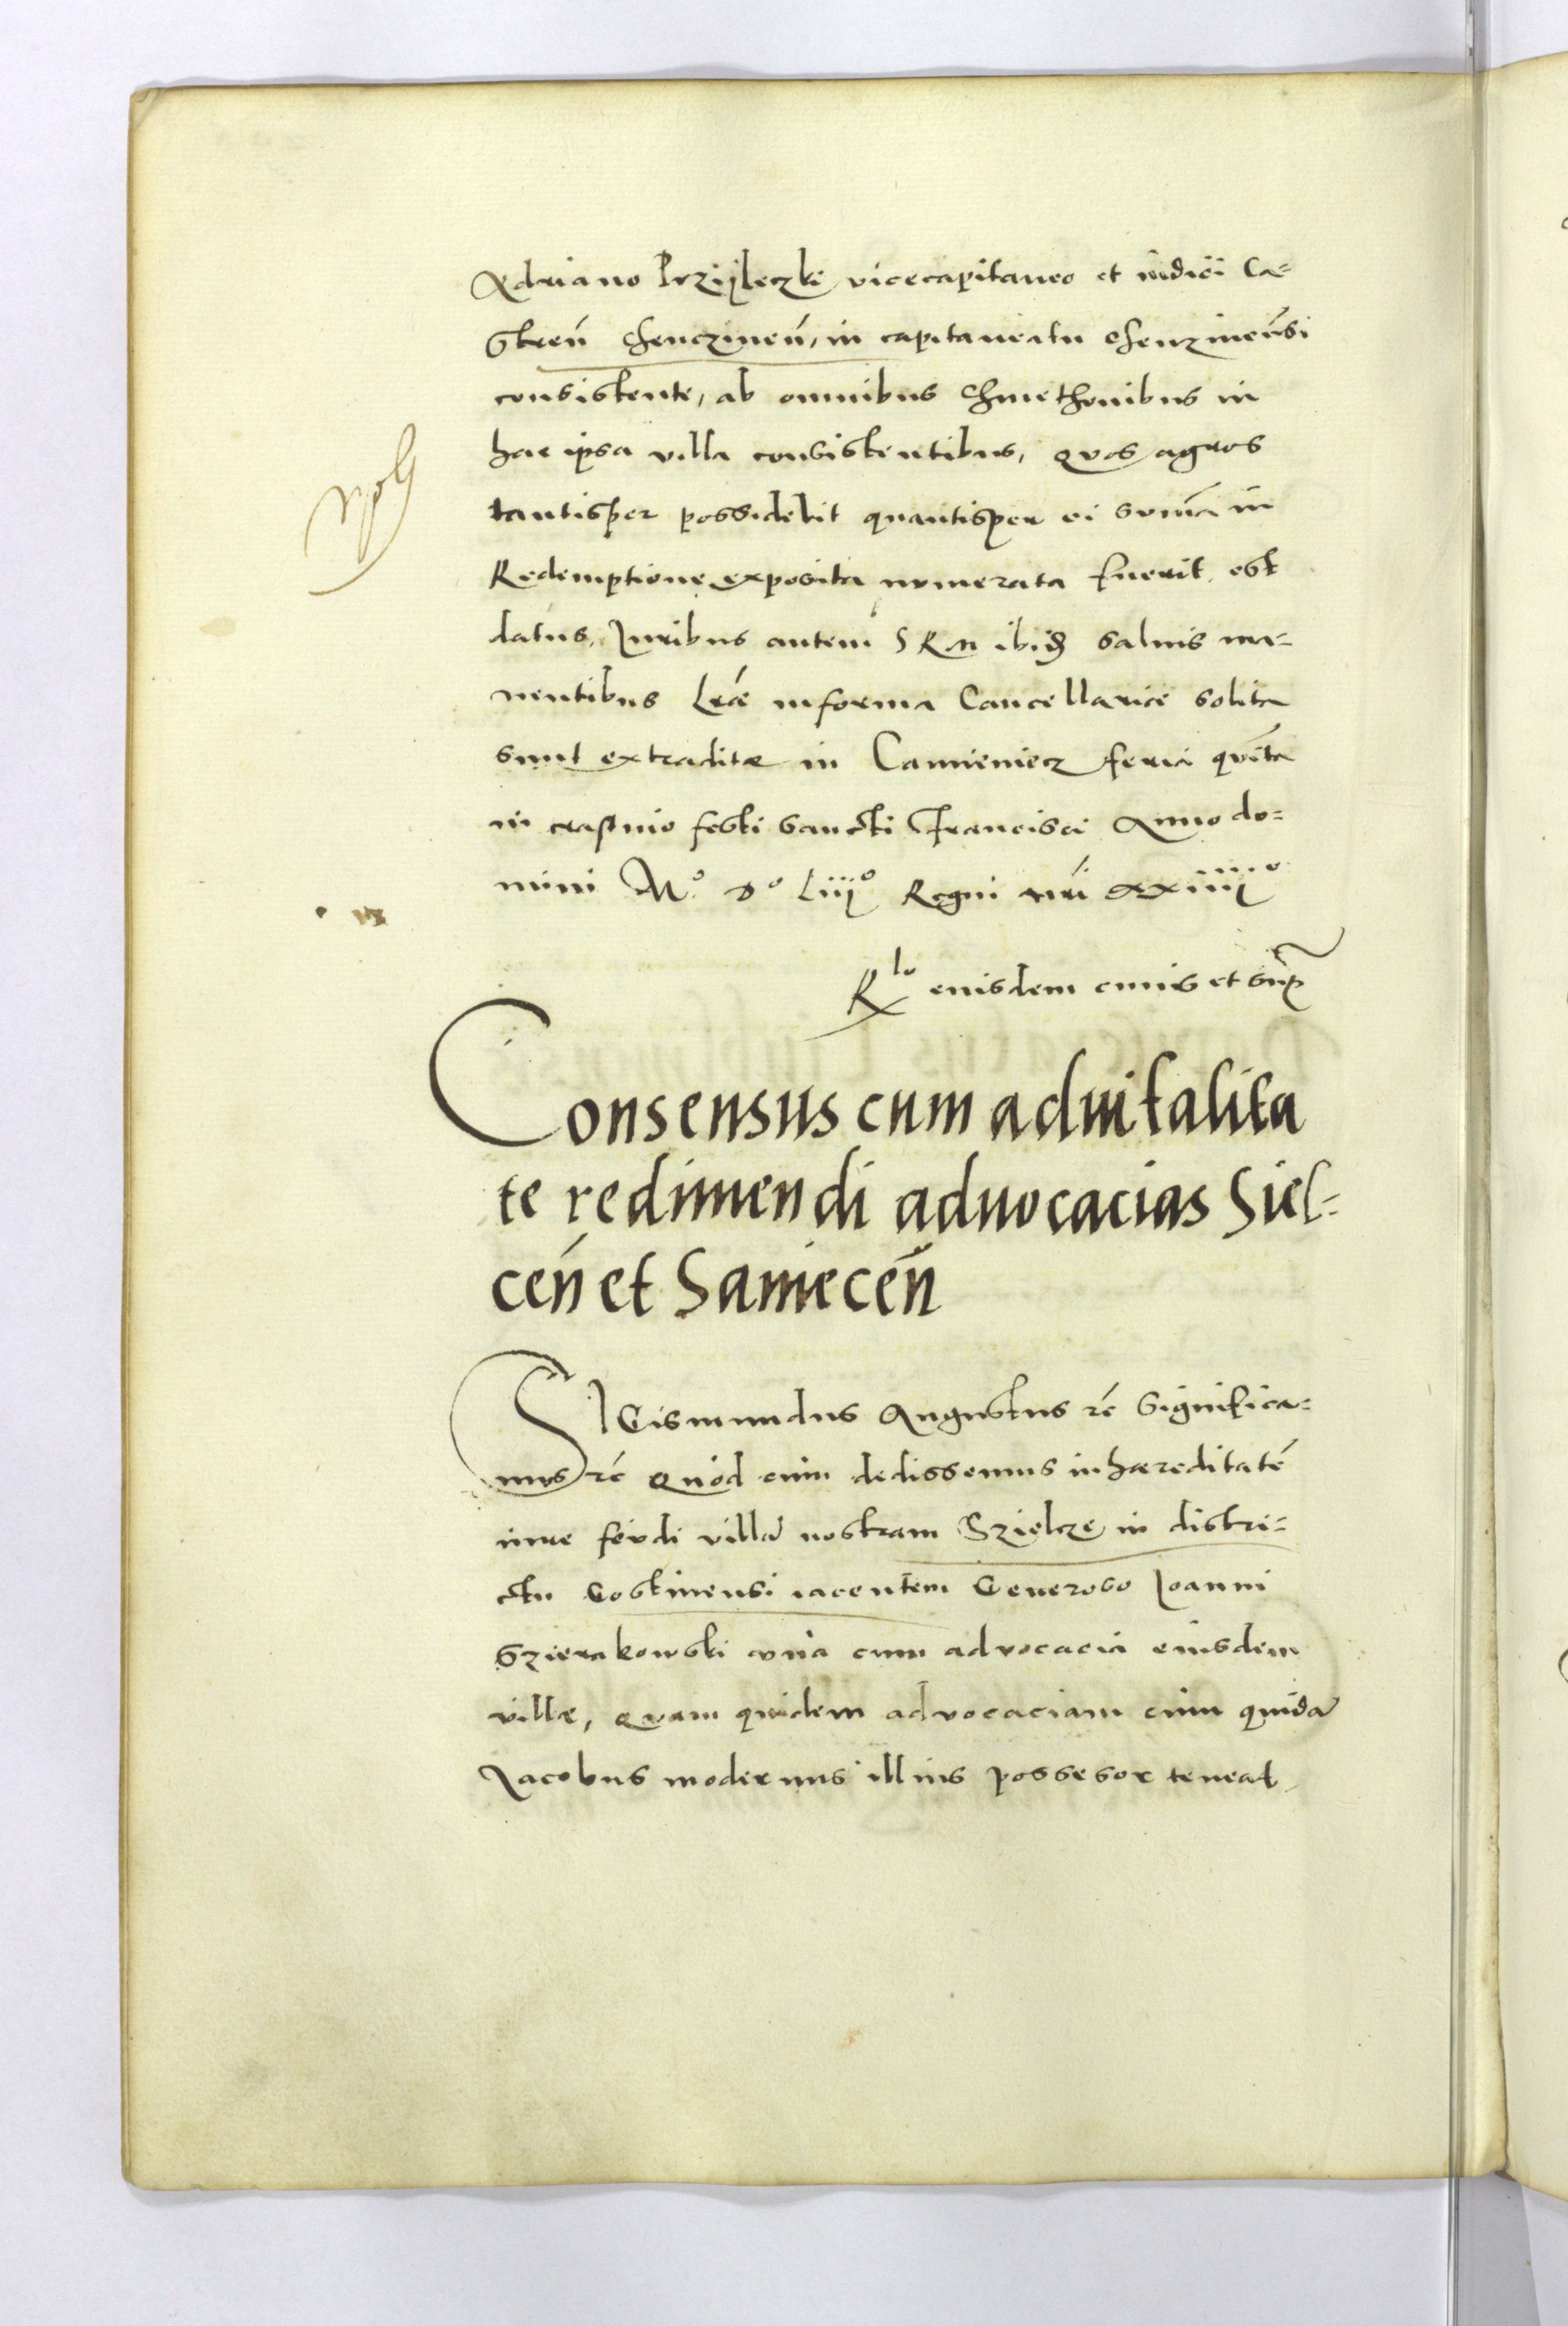 Adriano Przijleczki vicecapitaneo et iudici Ca=
streñ Chenczineñ, in capitaneatu Chenzinensi
consistente, ab omnibus Chmethonibus in
hac ipsa villa consistentibus, quos agros
tantisper possidebit quantisper ei sum̃a in
Redemptione exposita numerata fuerit est
datus, Iuribus autem S R M ibid̃ saluis ma=
nentibus Lr̃æ in forma Cancellariæ solita
sunt extraditæ in Camieniecz feria quĩta
in crastino festi sancti Francisci Anno do=
mini Mº. Dº Liiijº Regni nr̃i xxiiiijº
Rlo eiusdem cuius et sup̃
Consensus cum aduitalita
te redimendi aduocacias Siel=
ceñ et Samieceñ
SIGismundus Augustus rc̃ Significa=
mus rc̃ Quod cum dedissemus in hæreditatẽ
iure feudi villã nostram Szielcze in distri=
ctu Costinensi iacentem Generoso Ioanni
Szierakowski vna cum advocacia eiusdem
villæ, Quam quidem advocaciam cum quidã
Iacobus modernus illius possesor teneat